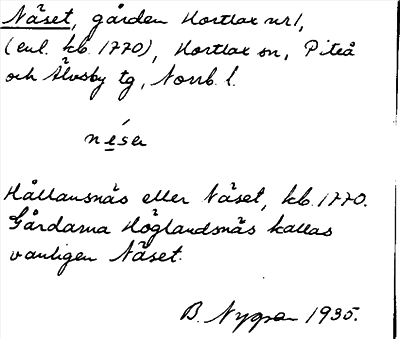 Näset, gården Hortlax nr 1,
(enl. kb. 1770), Hortlax sn, Piteå
och Älvsby tg, Norrb. l.
néser
Hållansnäs eller Näset, kb. 1770.
Gårdarna Höglandsnäs kallas
vanligen Näset.
B. Nygren 1935.